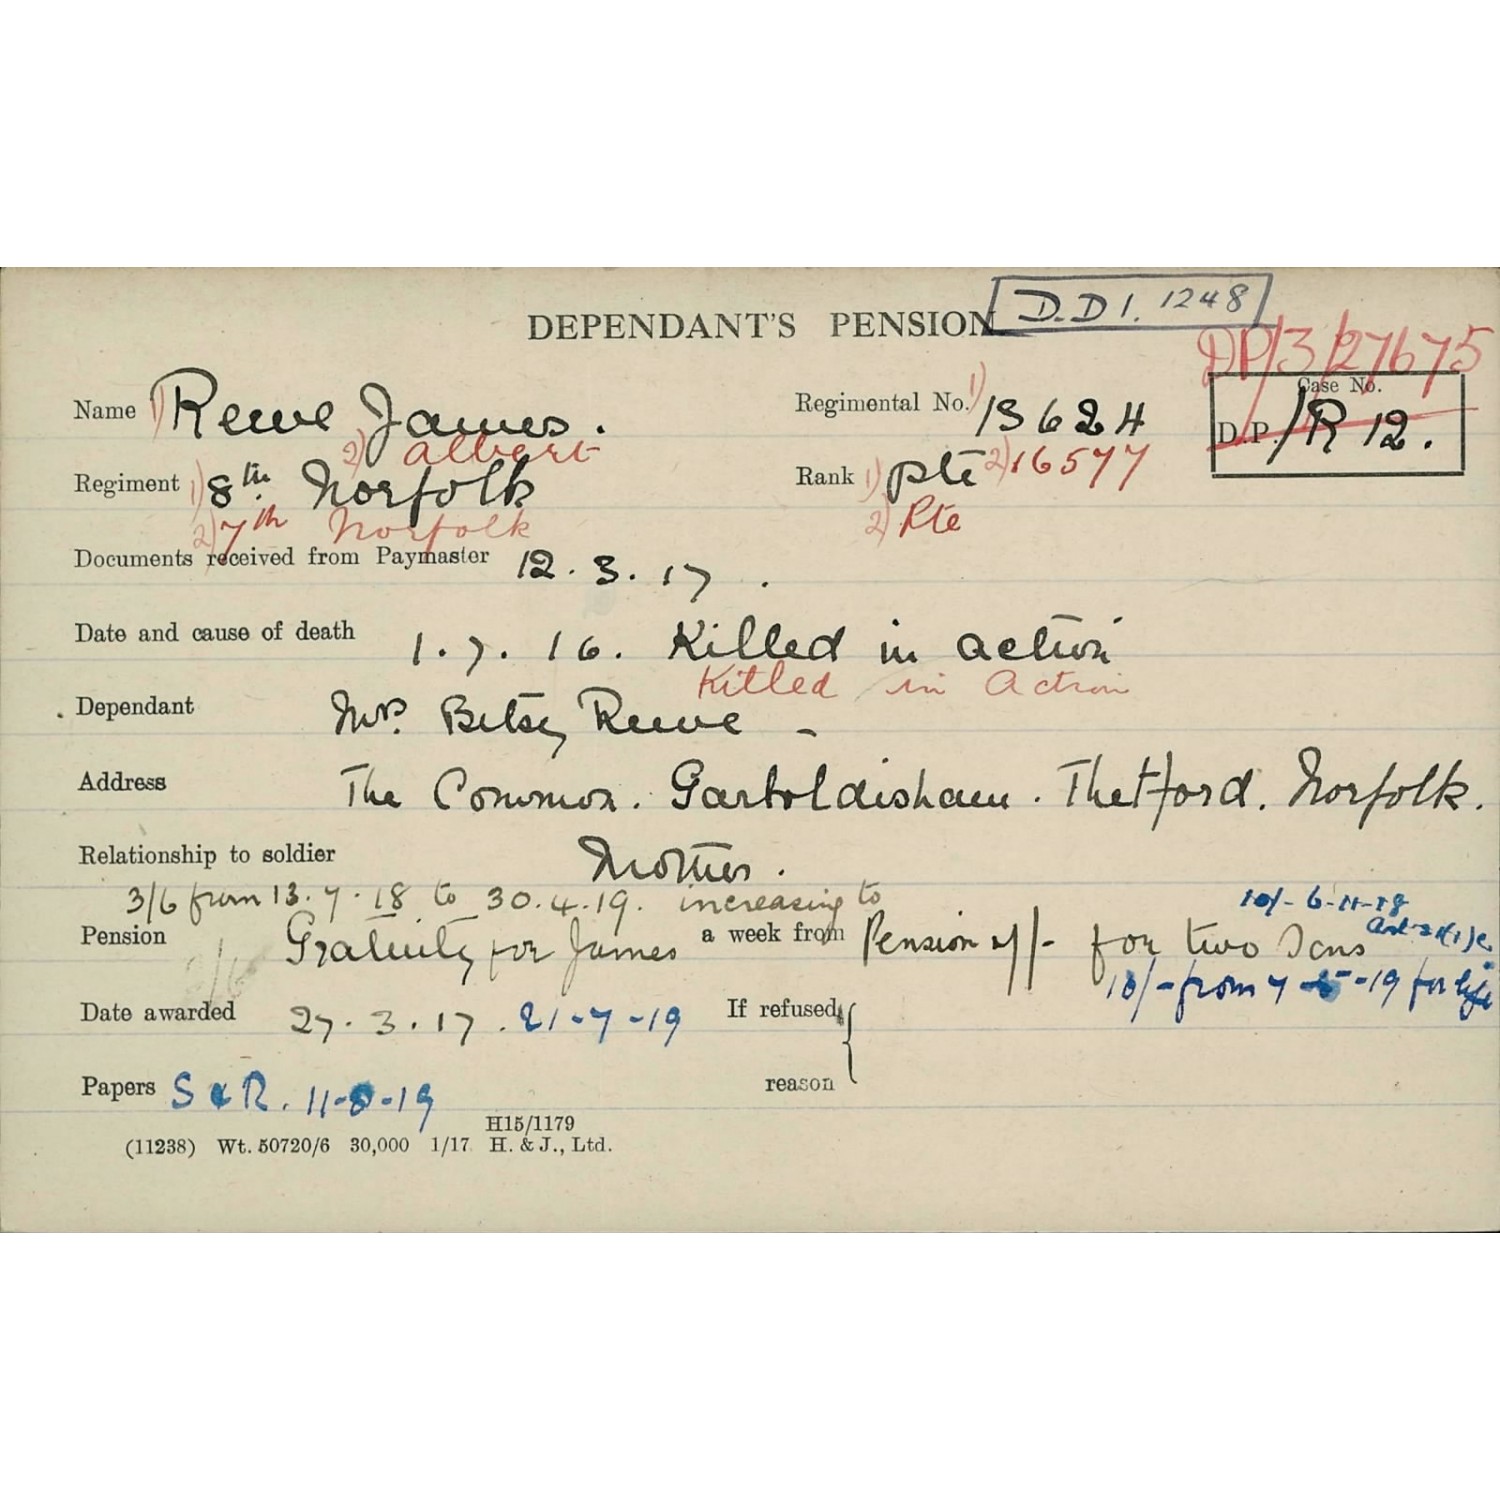 DEPENDANT'S PENSION D.D 1. 1248
DP/3/27675
Case No.
D.P. /R 12.
Name 1) Reeve James. Regimental No. 1) 13624
2) Albert
Regiment 1) 8th Norfolk Rank 1) Pte 2) 16577
2) 7th Norfolk 2) Pte
Documents received from Paymaster 12.3.17.
Date and cause of death 1.7.16. Killed in action
Killed in Action
Dependant Mrs. Betsy Reeve -
Address The Common. Garboldisham. Thetford. Norfolk.
Relationship to soldier Mother.
3/6 from 13.7.18 to 30.4.19. increasing to 10/- 6-11-18
Pension Gratuity for James a week from Pension of/- for two Sons Art 21(1)c
3/6 10/- from 7-5-19 for life
Date awarded 27.3.17. 21-7-19 If refused, {
reason
Papers S & R. 11-8-19
H15/1179
(11238) Wt. 50720/6 30,000 1/17 H. & J., Ltd.